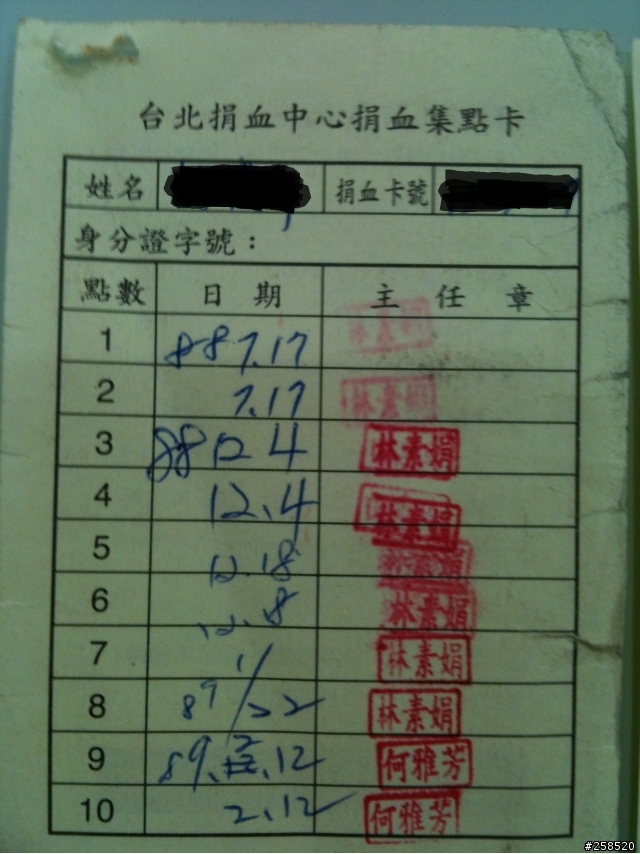 台北捐血中心捐血集點卡
姓名 捐血卡號
身分證字號：
點數 日期 主任章
1 88 7.17 林素娟
2 7.17 林素娟
3 88 12 4 林素娟
4 12.4 林素娟
5 12.18 林素娟
6 12.8 林素娟
7 林素娟
8 89 1/22 林素娟
9 89.2.12 何雅芳
10 2.12 何雅芳
#258520